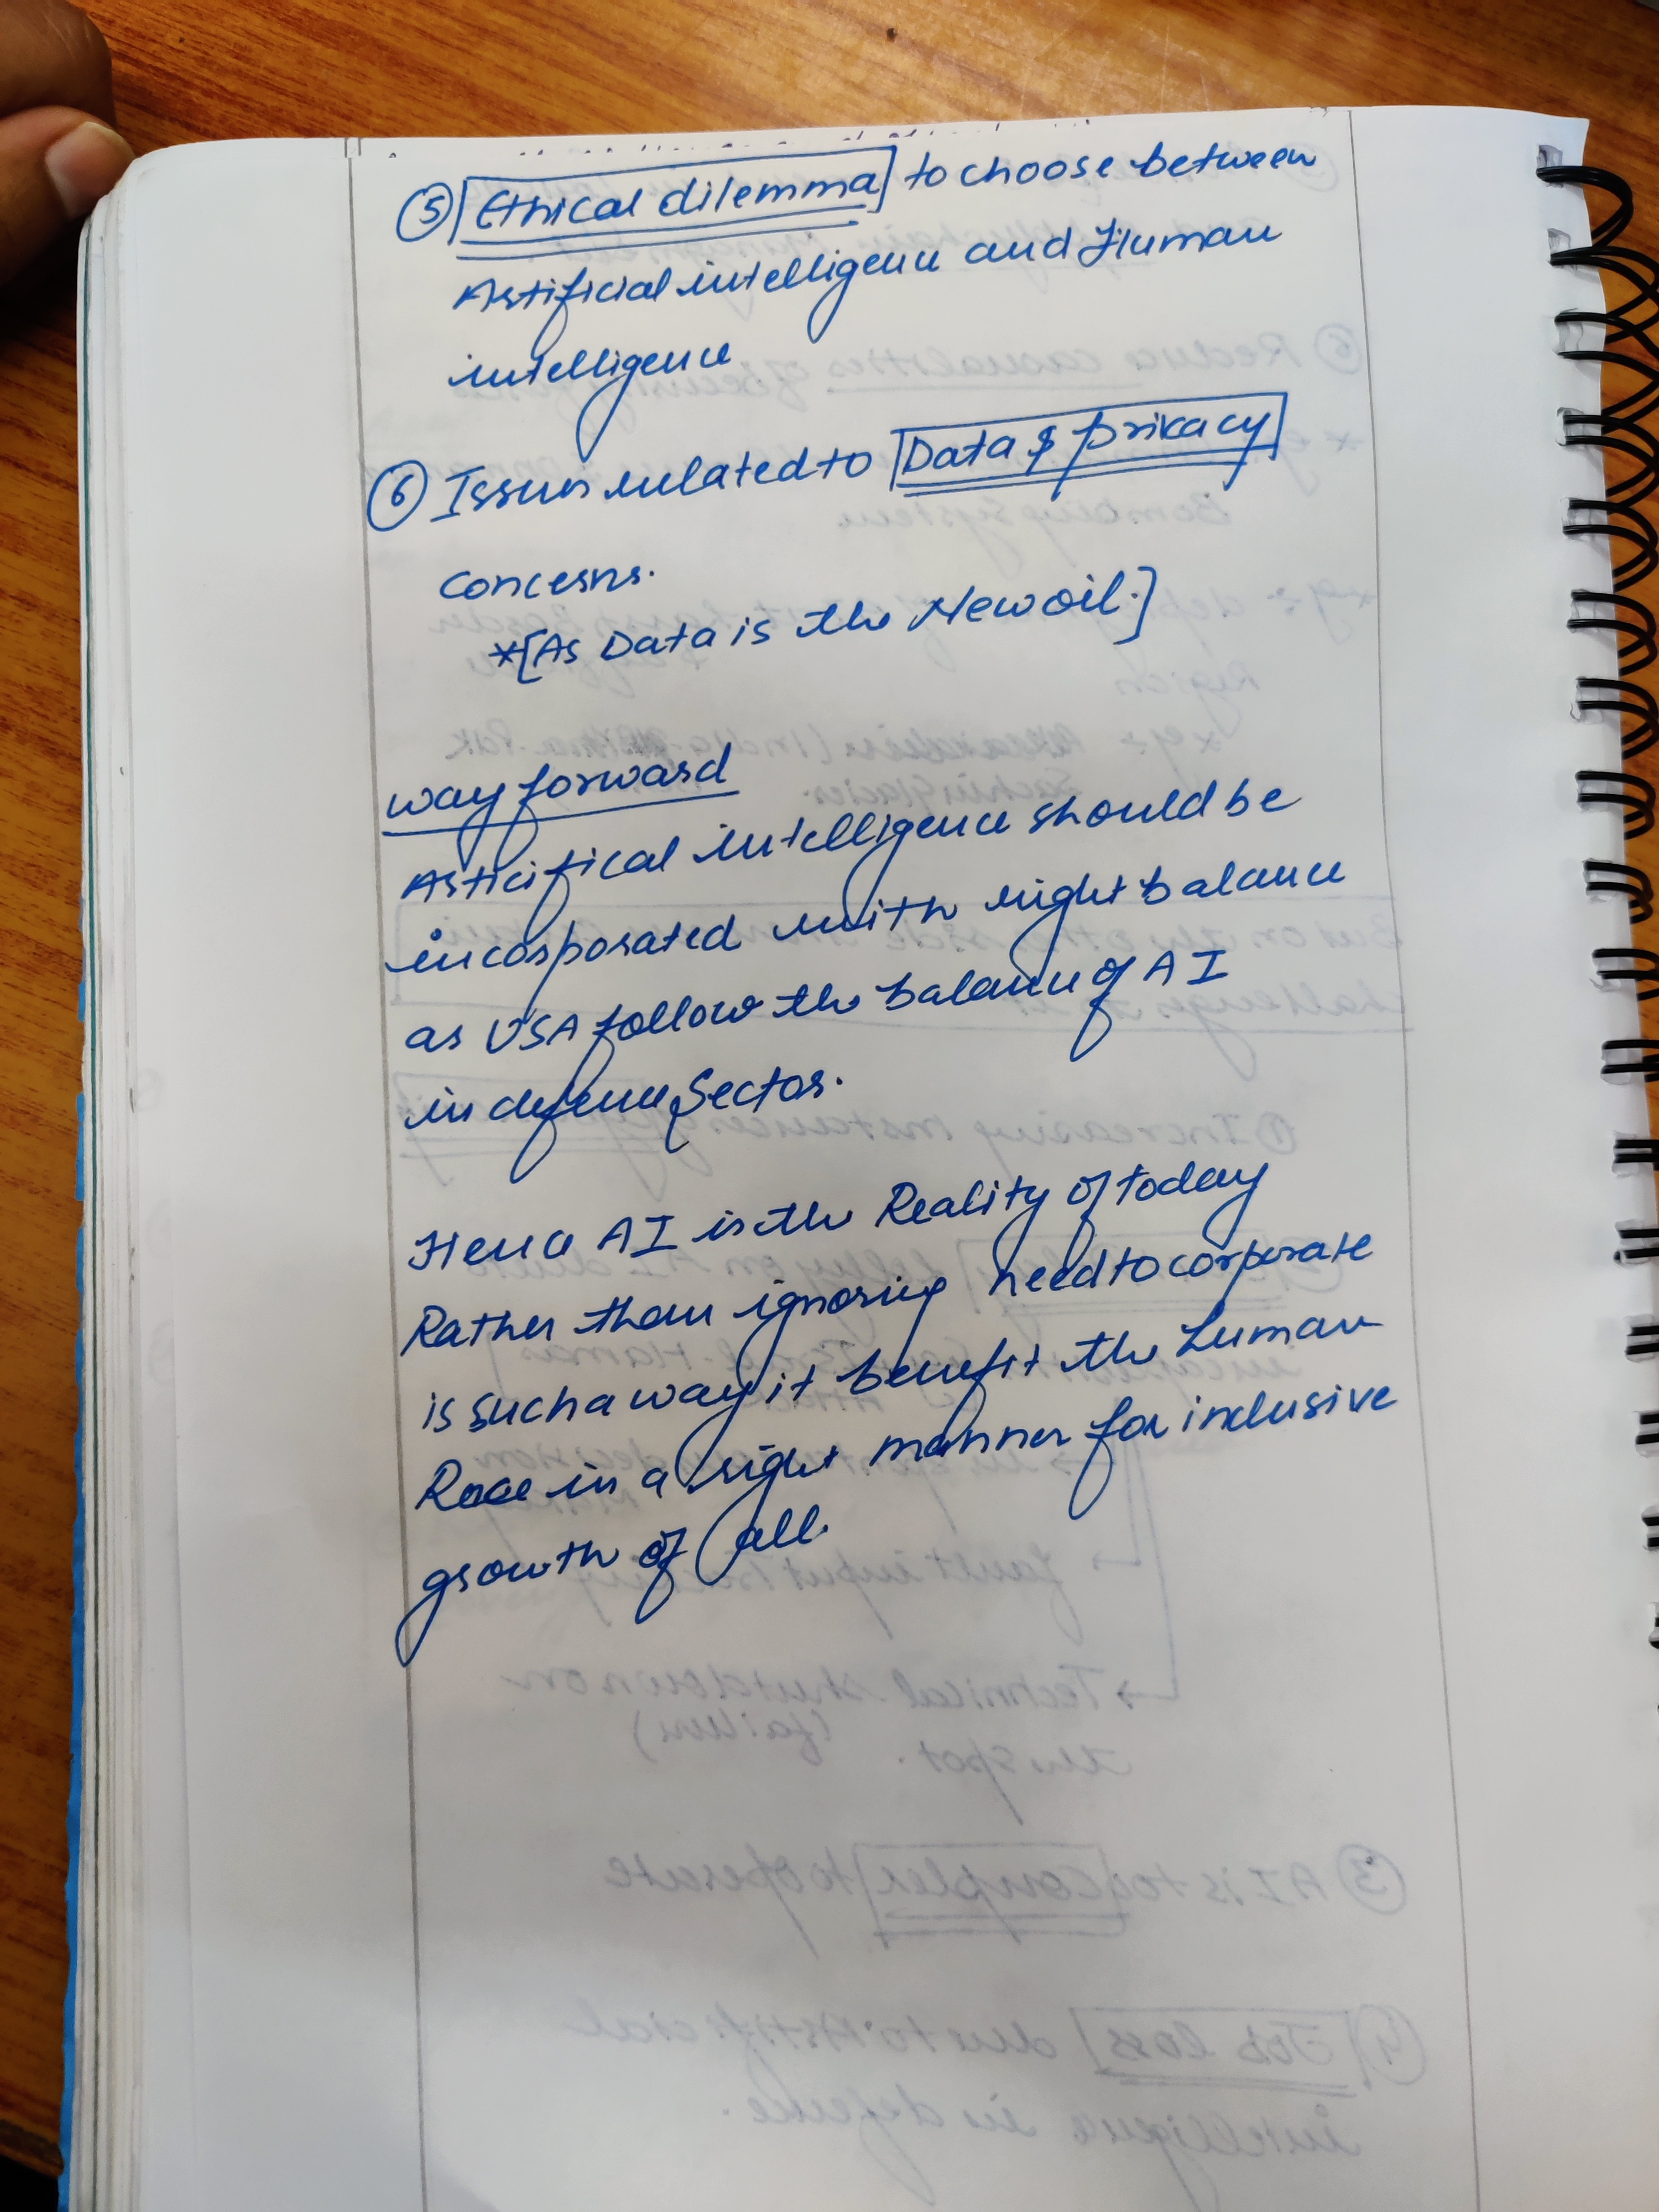 ⑤ Ethical dilemma to choose between
Artificial intelligence and Human
intelligence
⑥ Issues related to Data & privacy
concerns.
*[As Data is the New oil.]
way forward
Articifical intelligence should be
incorporated with right balance
as USA follow the balance of AI
in defence Sector.
Hence AI is the Reality of today
Rather than ignoring need to corporate
is such a way it benefit the human
Race in a right manner for inclusive
growth of all.